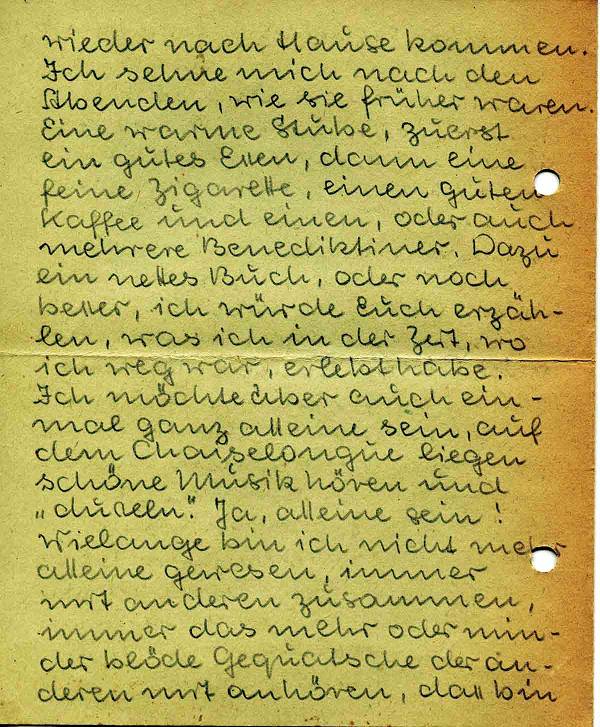 wieder nach Hause kommen.
Ich sehne mich nach den
Abenden, wie sie früher waren.
Eine warme Stube, zuerst
ein gutes Essen, dann eine
feine Zigarette, einen guten
Kaffee und einen, oder auch
mehrere Benediktiner. Dazu
ein nettes Buch, oder noch
besser, ich würde Euch erzäh-
len, was ich in der Zeit, wo
ich weg war, erlebt habe.
Ich möchte über auch ein-
mal ganz alleine sein, auf
dem Chaiselongue liegen
schöne Musik hören und
„duseln". Ja, alleine sein!
Wielange bin ich nicht mehr
alleine gewesen, immer
mit anderen zusammen,
immer das mehr oder min-
der blöde Gequatsche der an-
deren mit anhören, dass bin